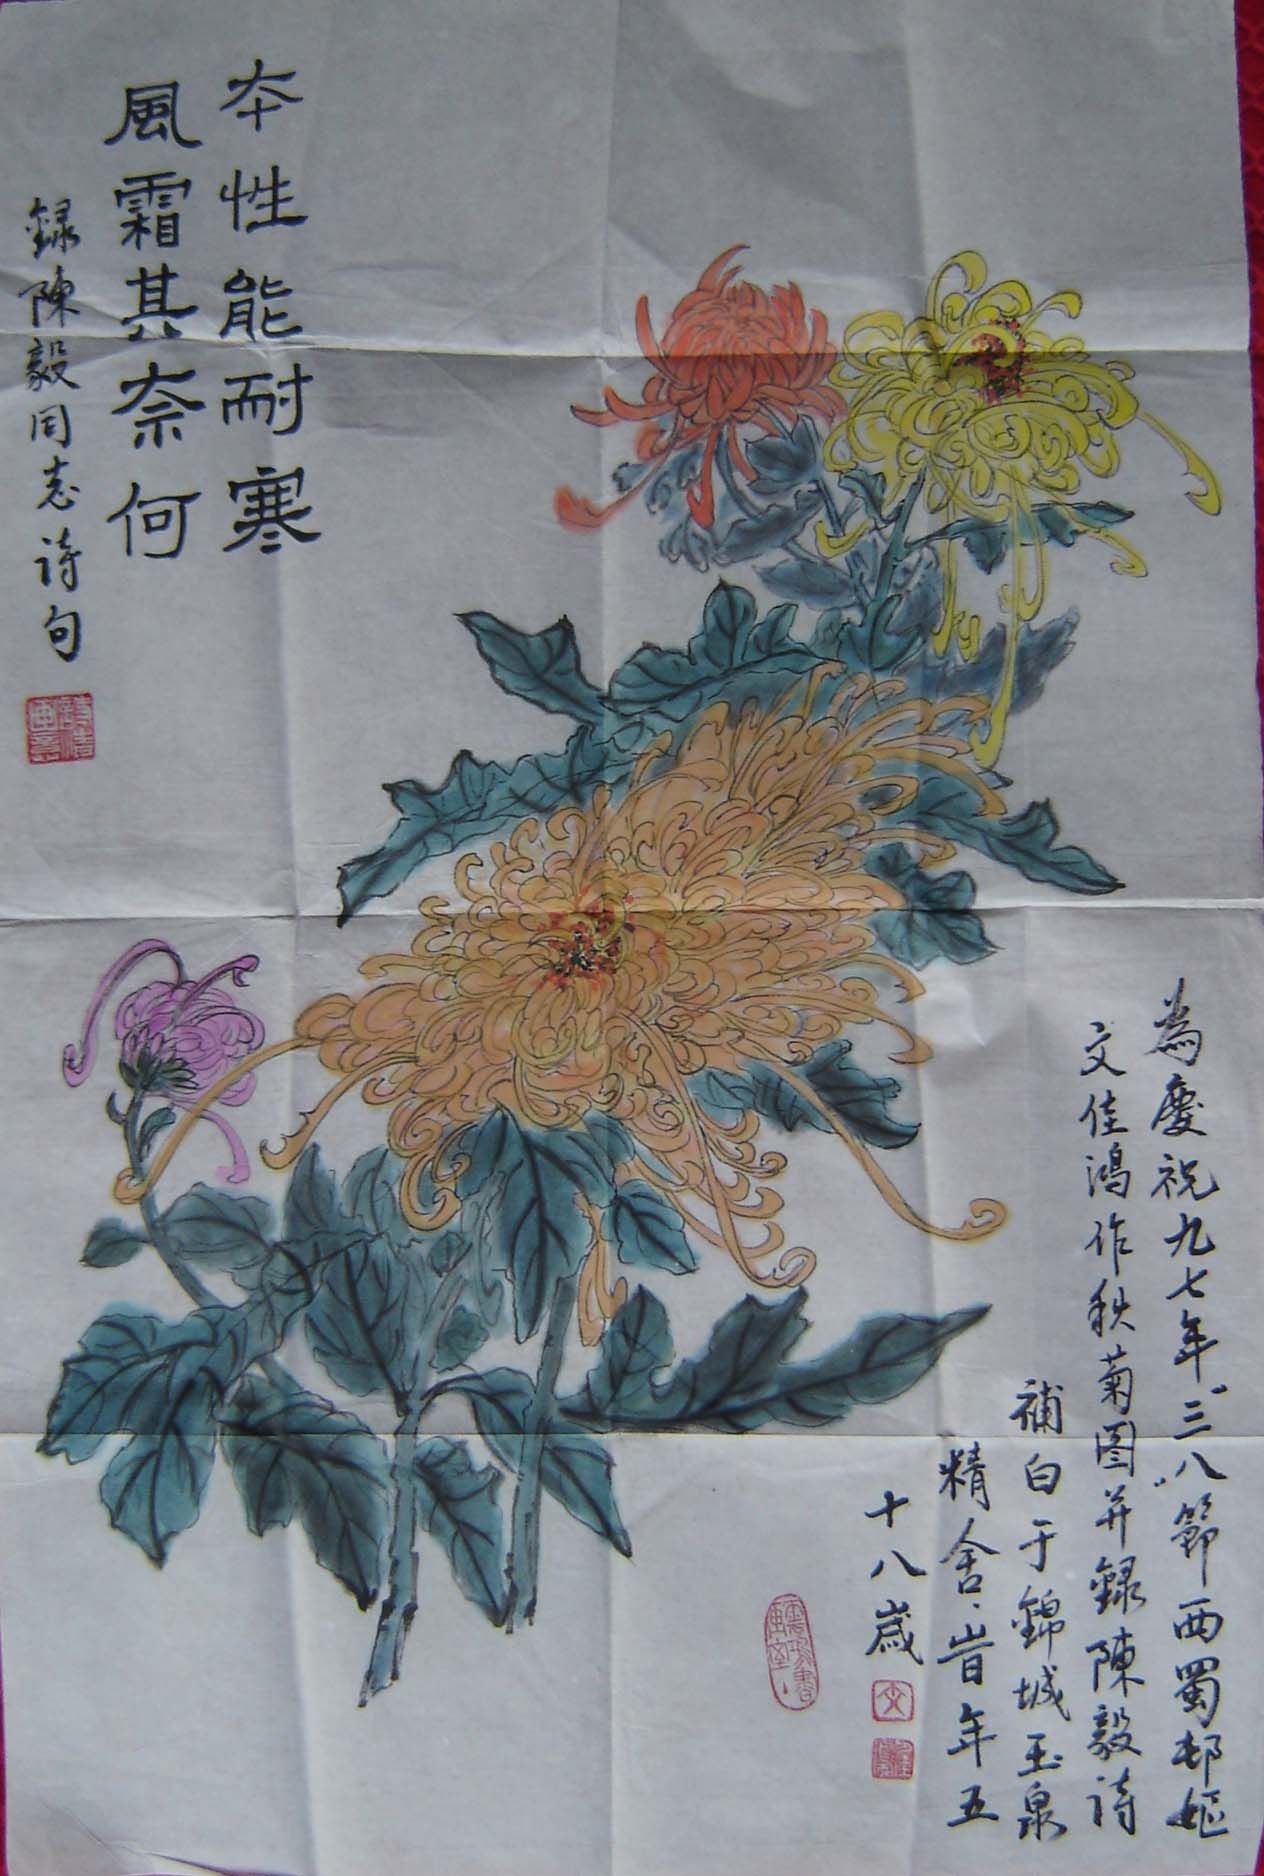 本性能耐寒
風霜其奈何
録陳毅同志诗句
為慶祝九七年"三八"節西蜀邨嫗
文佳鴻作秋菊图并録陳毅诗
補白于錦城玉泉
精舍、岩年五
十八歲
文